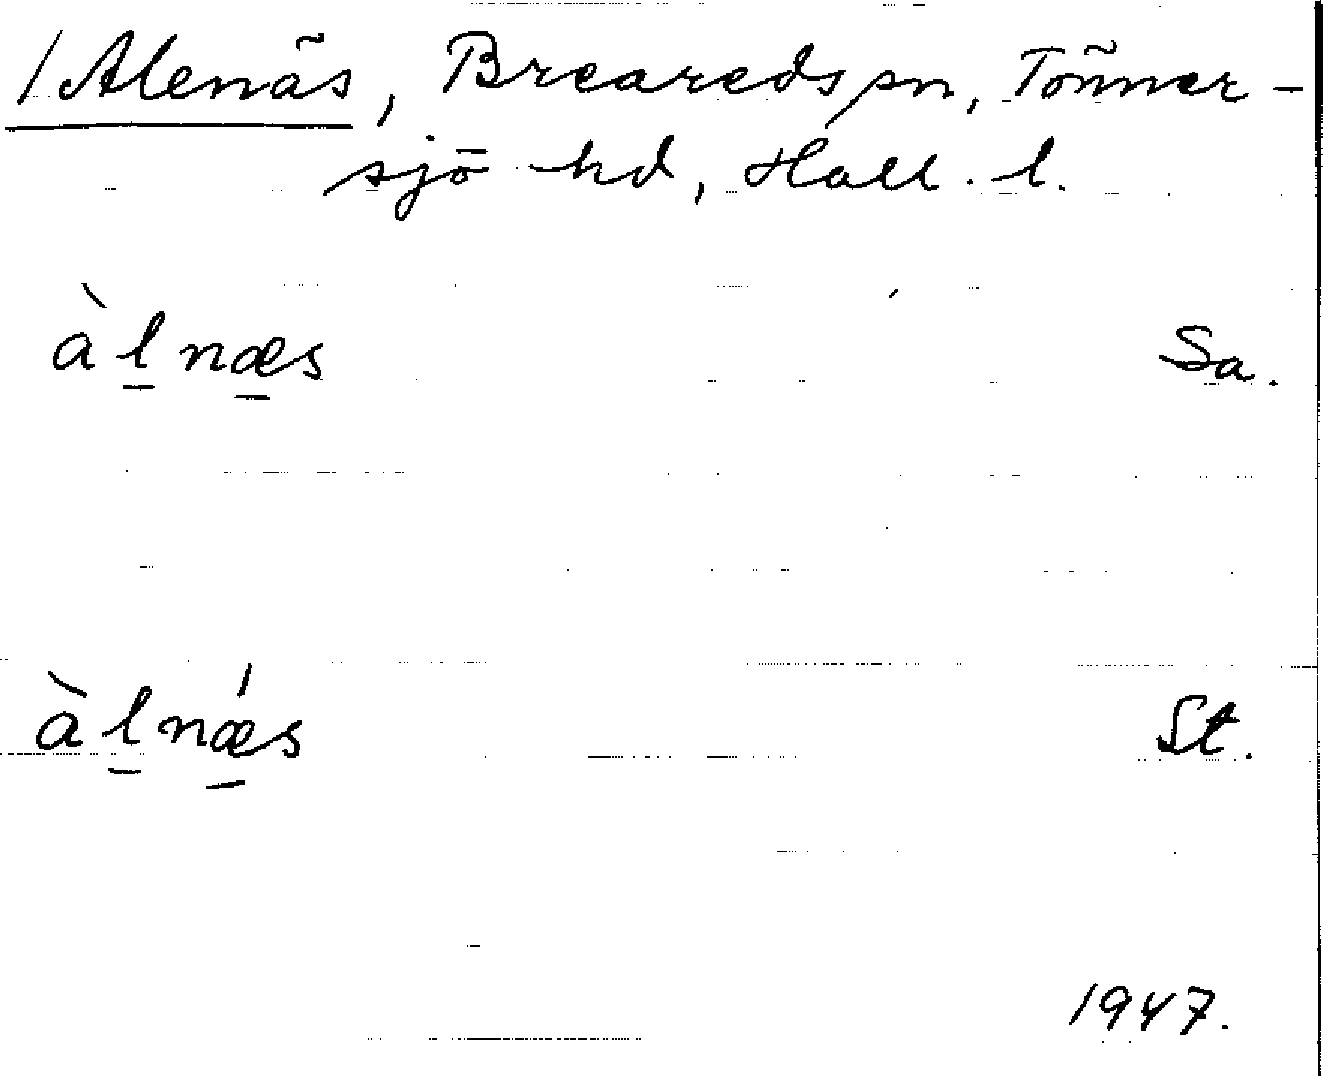 /Alenäs, Breareds sn, Tönner-
sjö hd, Hall. l.
àlnæs Sa.
àlnǽs St.
1947.